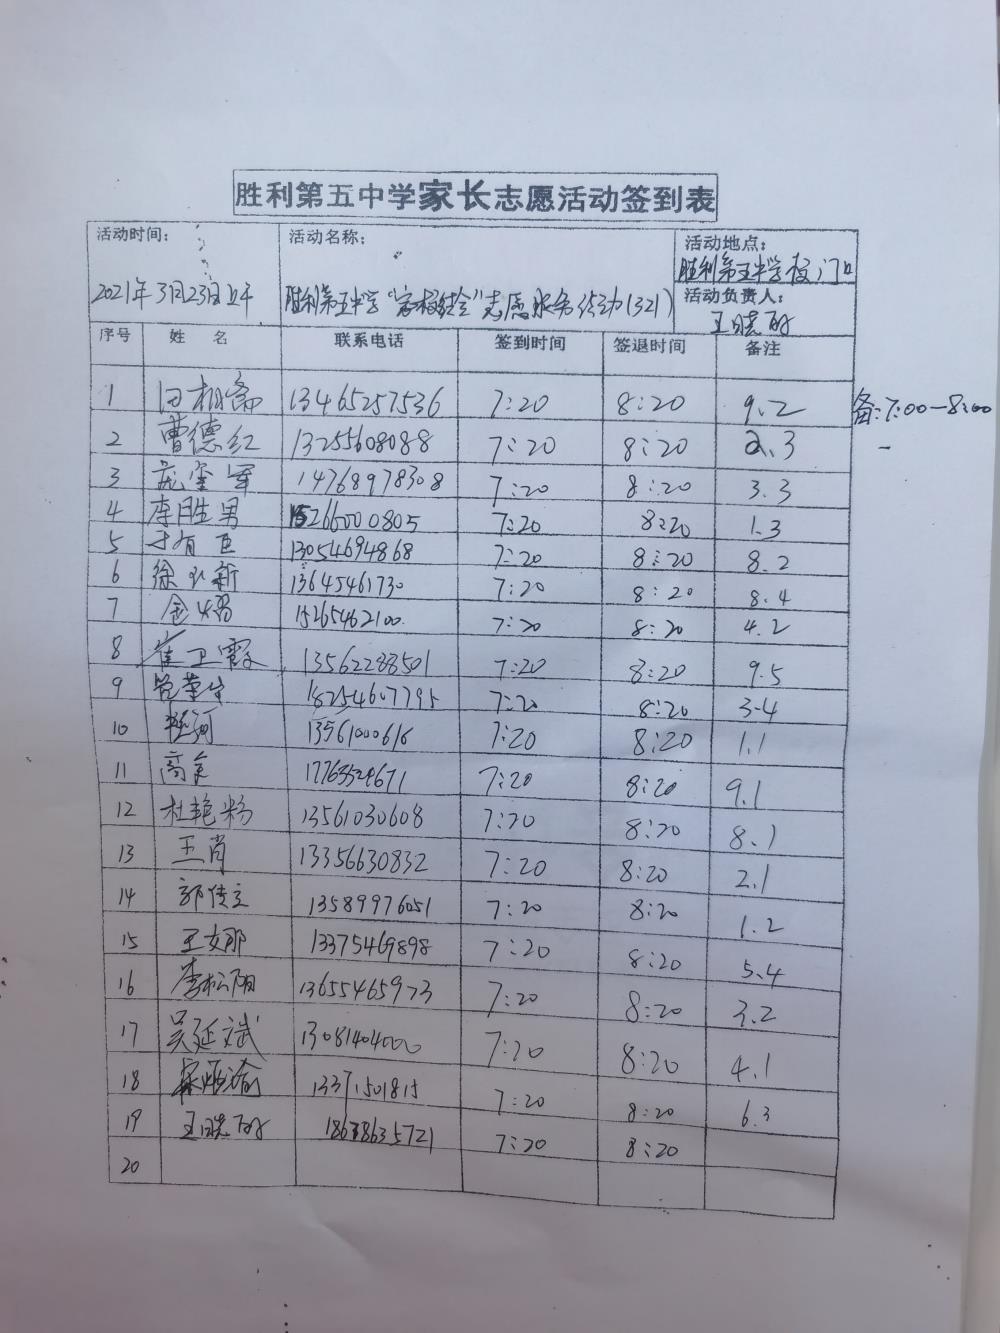 胜利第五中学家长志愿活动签到表
活动时间: 活动名称: 活动地点:
胜利第五中学校门口
2021年3月23日上午 胜利第五中学“家校结合”志愿服务活动(321) 活动负责人:
王晓
序号 姓名 联系电话 签到时间 签退时间 备注
1 田相斋 13465257536 7:20 8:20 9.2 备:7:00-8:00
2 曹德红 13255608088 7:20 8:20 2.3
3 14768978308 7:20 8:20 3.3
4 李胜男 15266000805 7:20 8:20 1.3
5 于有臣 13054694868 7:20 8:20 8.2
6 徐 新 13645461730 7:20 8:20 8.4
7 金 15265462100 7:20 8:20 4.2
8 崔卫霞 13562288501 7:20 8:20 9.5
9 18254607795 7:20 8:20 3.4
10 13561000616 7:20 8:20 1.1
11 7:20 8:20 9.1
12 杜艳粉 13561030608 7:20 8:20 8.1
13 王肖 13356630832 7:20 8:20 2.1
14 郭传立 13589976051 7:20 8:20 1.2
15 王女那 13375469898 7:20 8:20 5.4
16 李松阳 13655465973 7:20 8:20 3.2
17 吴延斌 13081404000 7:20 8:20 4.1
18 13371501815 7:20 8:20 6.3
19 王晓 18638635721 7:20 8:20
20